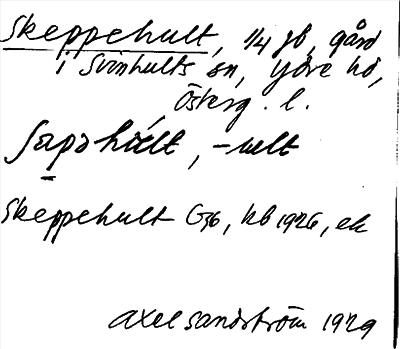 Skeppehult, 1/4 jb, gård
i Svinhults sn, Ydre hd,
Österg. l.
, -ult
Skeppehult G36, kb 1926, ek
Axel Sandström 1929